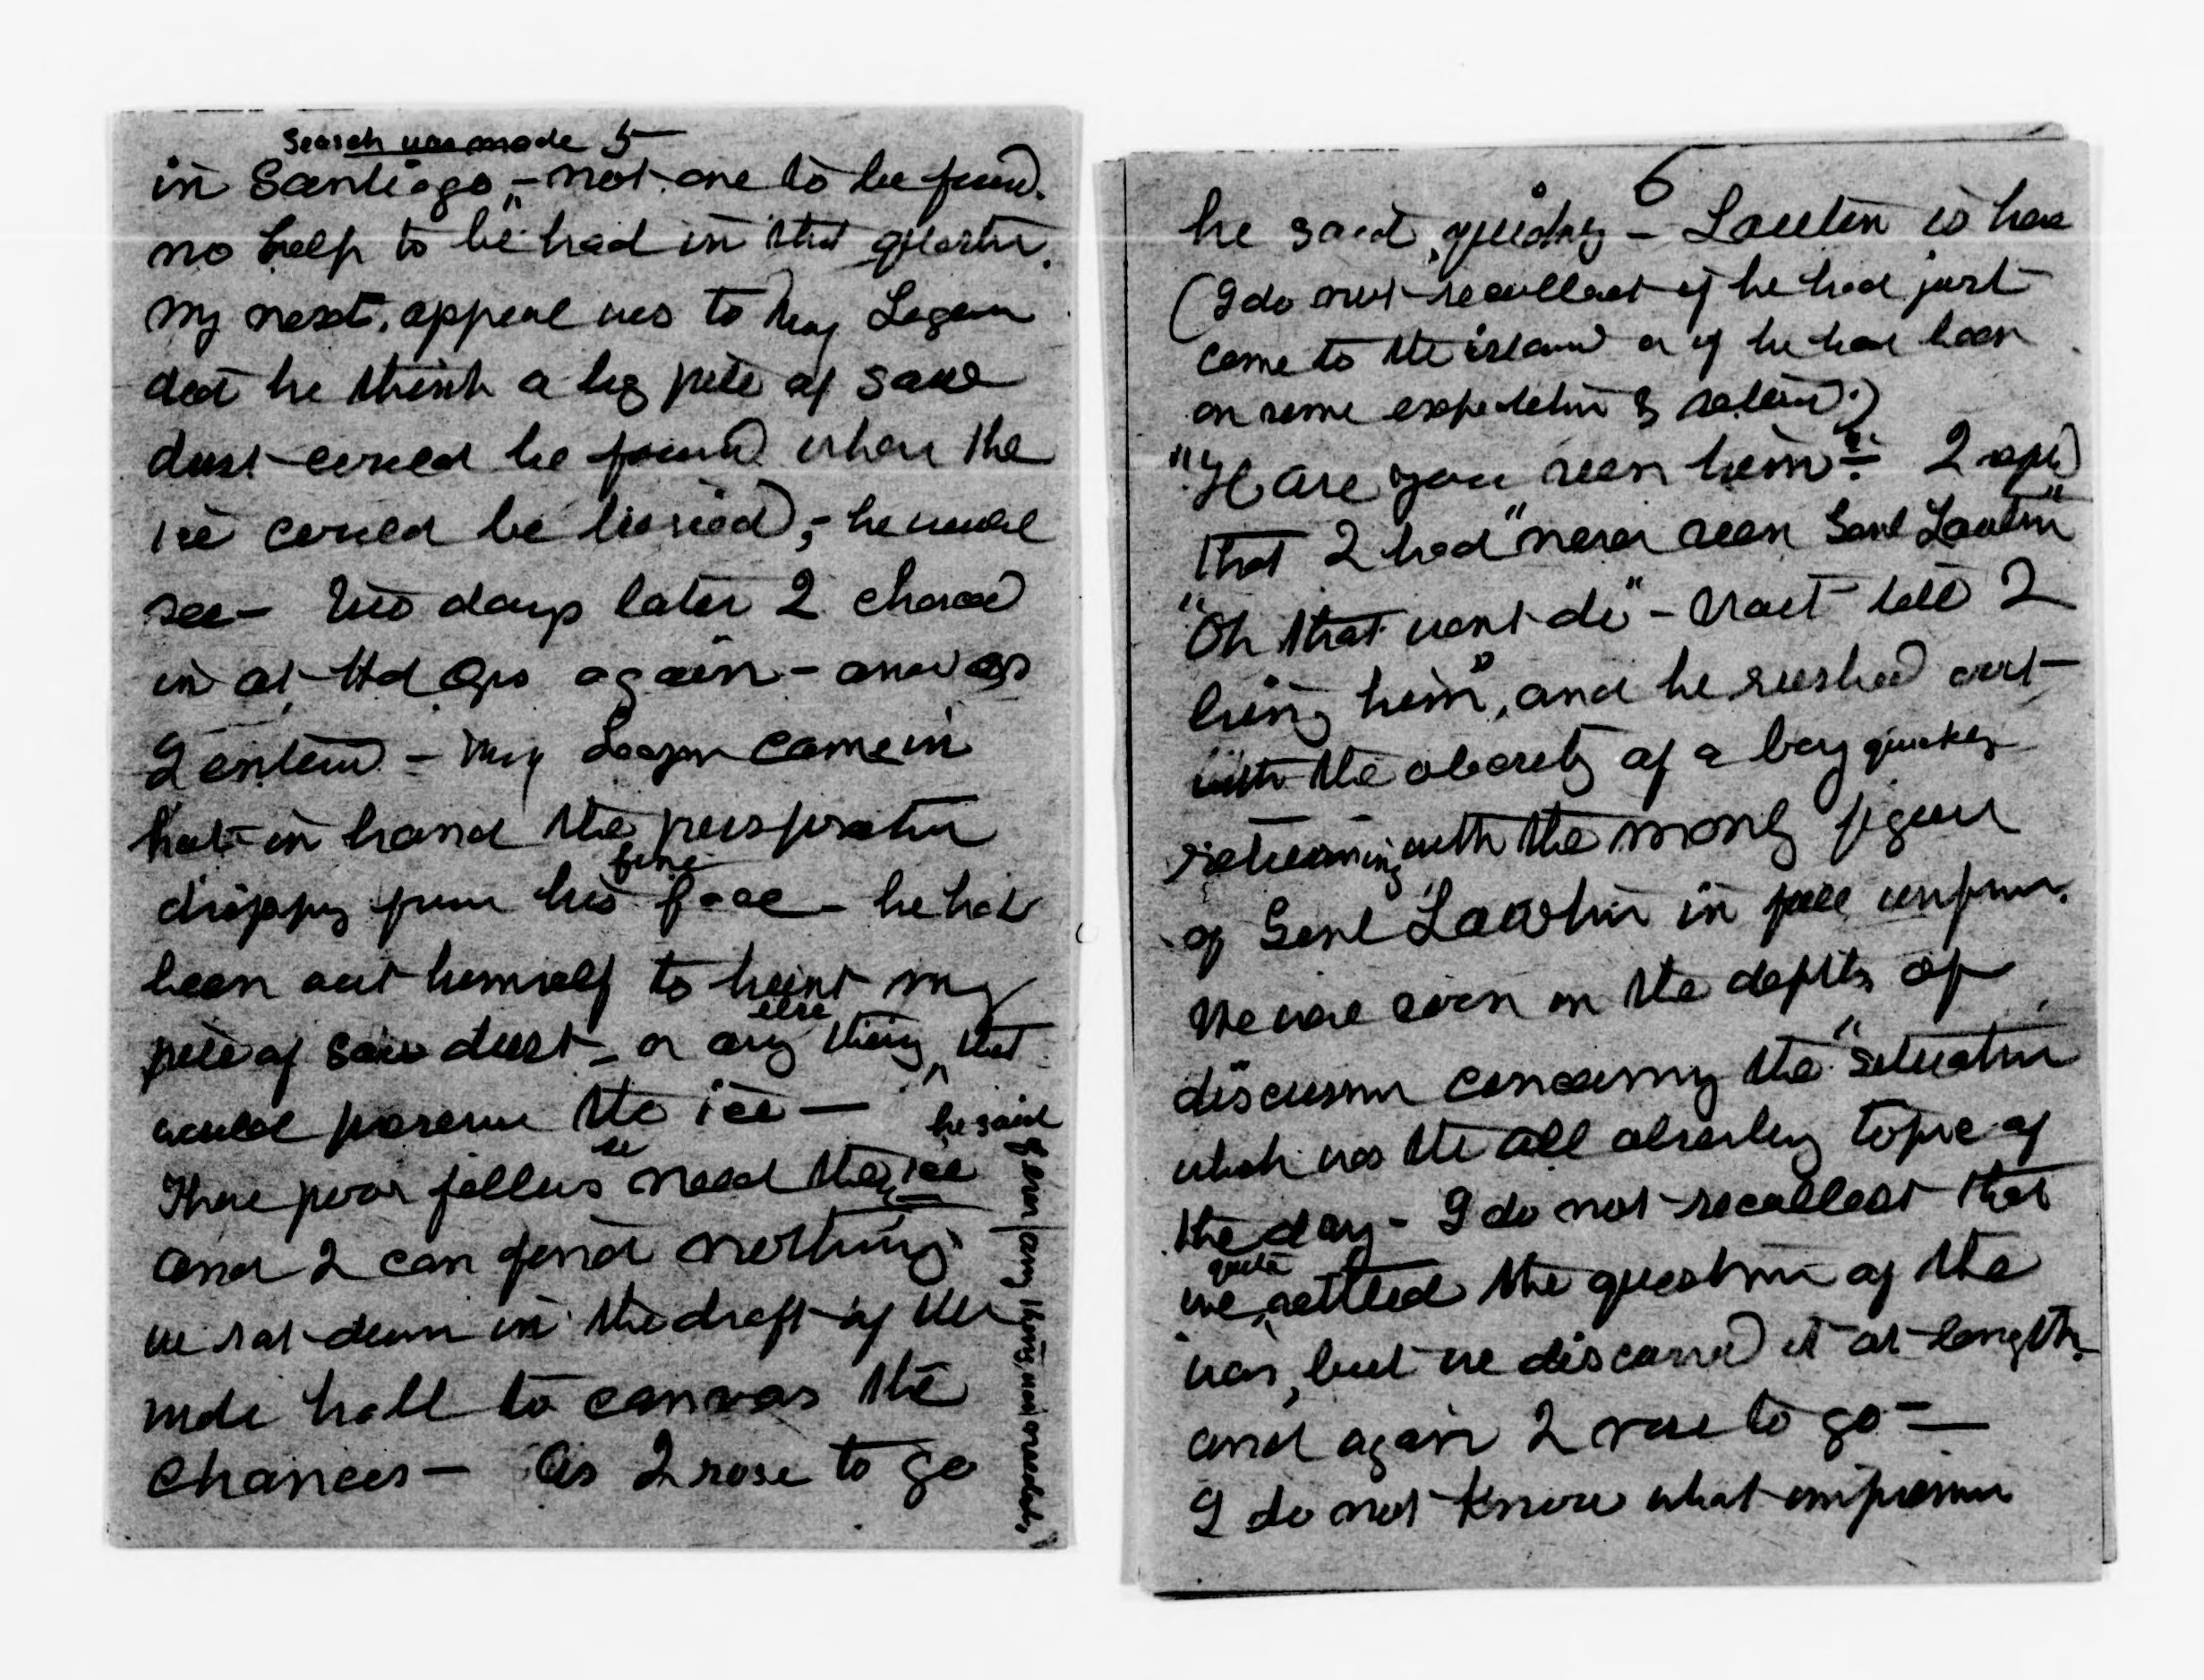 5
Search was made
in Santiago, - not one to be found.
no help to be had in that quarter.
My next, appeal was to Maj Logan
did he think a big pile of saw
dust could be found where the
ice could be buried, - he would
see - Two days later I chanced
in at Hd Qrs again - and as
I entered - Maj Logan came in
hat in hand the perspiration
dripping from his fine face - he had
been out himself to hunt my
pile of saw dust - or any thing else that
would preserve the ice -
he said
These poor fellows so need the ice
and I can find nothing
we sat down in the draft of the
wide hall to canvas the
chances - As I rose to go
if ever any thing was needed,
6
he said, quickly - Lawton is here
(I do not recollect if he had just
come to the island or if he had been
on some expedition & returned.)
"Have you seen him"? I said
that I had "never seen Genl Lawton"
"Oh that wont do" - Wait till I
bring him", and he rushed out
with the alacrity of a boy quickly
returning with the manly figure
of Genl Lawton in full uniform.
We were soon in the depths of
discussion concerning the "situation
which was the all absorbing topic of
the day - I do not recollect that
we quite settled the question of the
war, but we discussed it at length.
and again I rose to go -
I do not know what impression